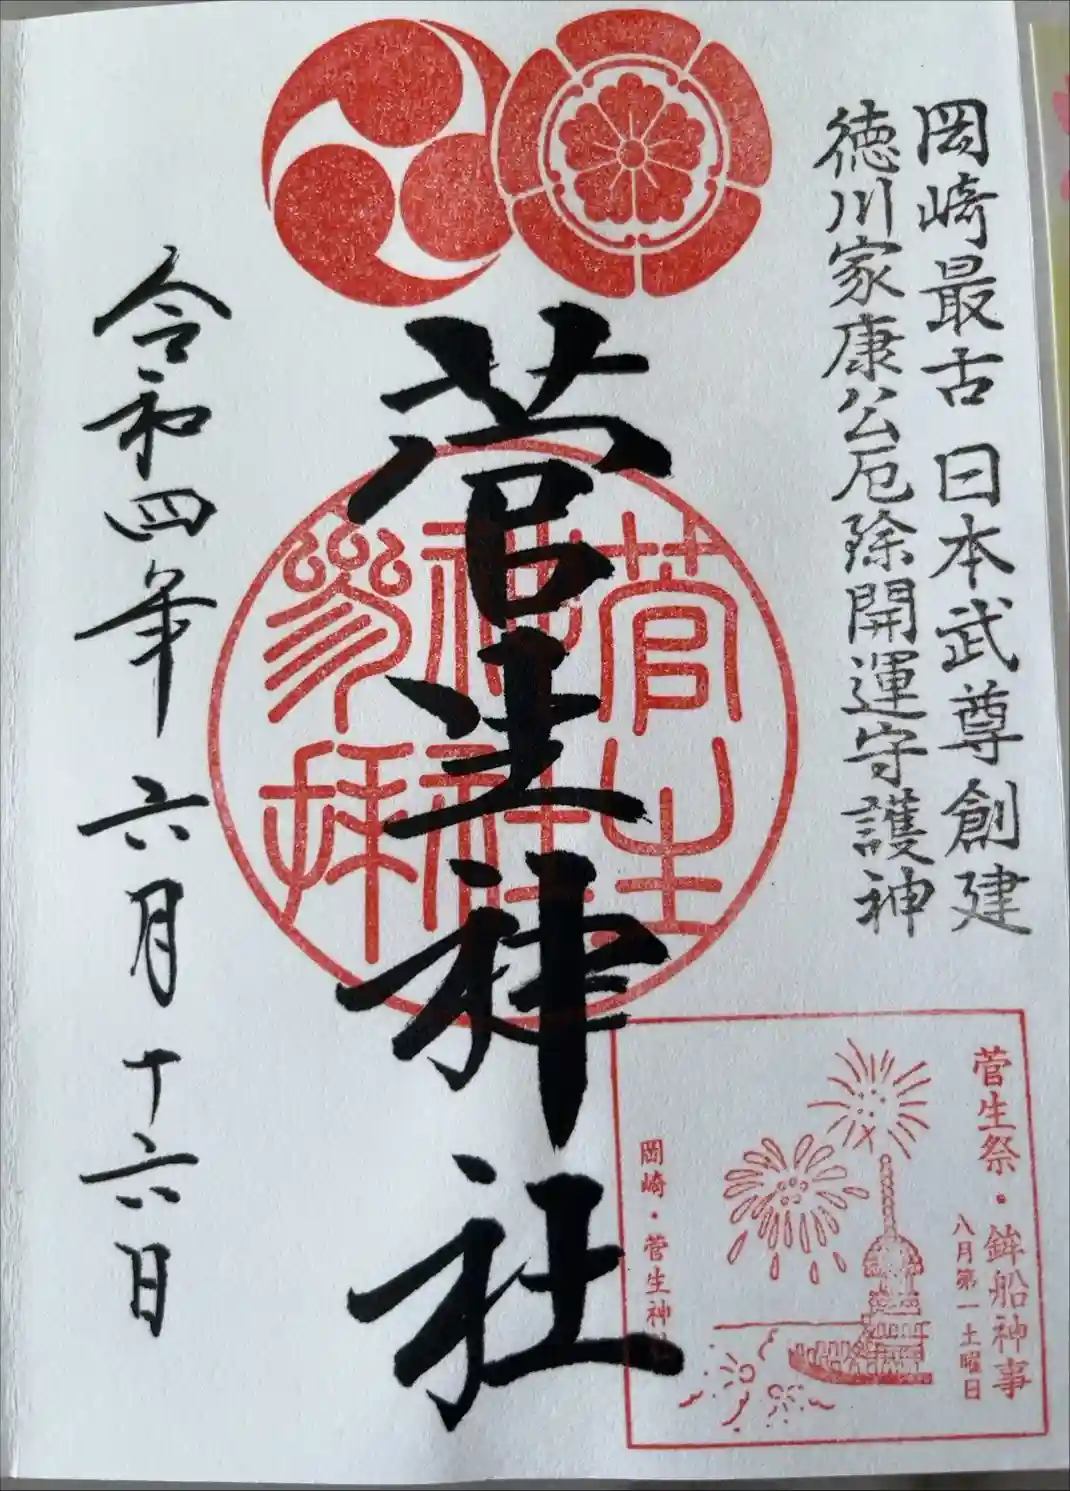 岡崎最古 日本武尊創建
徳川家康公厄除開運守護神
菅生神社
菅生
神社
参拝
令和四年 六月十六日
菅生祭・鉾船神事
八月第一土曜日
岡崎・菅生神社